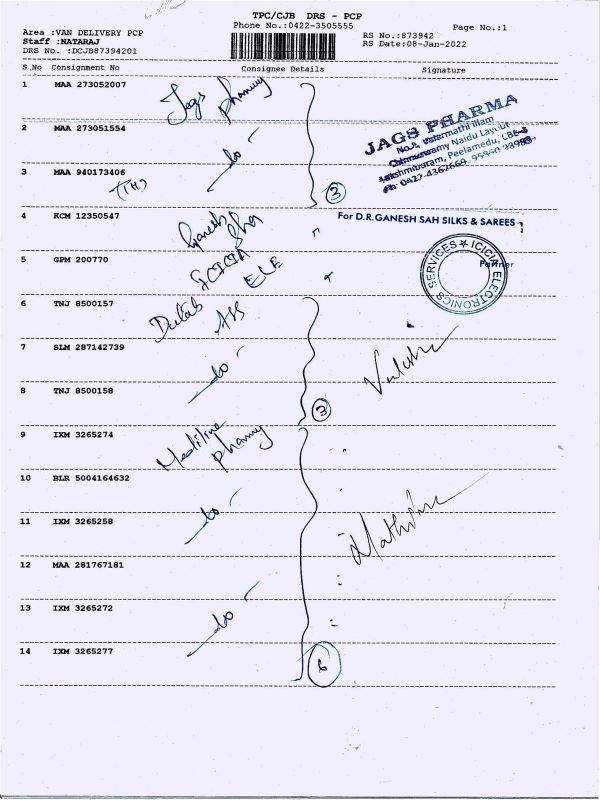 TPC/CJB DRS - PCP
Phone No.:0422-3505555
Page No.:1
Area :VAN DELIVERY PCP
Staff :NATARAJ
DRS No. :DCJB87394201
RS No.:873942
RS Date:08-Jan-2022
S.No Consignment No Consignee Details Signature
1 MAA 273052007 Jags Pharmy
2 MAA 273051554 do
JAGS PHARMA
Naidu
Peelamedu,
3 MAA 940173406
(TH)
3
4 KCM 12350547 Ganesh
For D.R.GANESH SAH SILKS & SAREES
5 GPM 200770 ICICIA ELE
Partner
SERVICES ★ ICICIA ELECTRONICS
6 TNJ 8500157
7 SLM 287142739 do
8 TNJ 8500158
3
9 IXM 3265274 Mediline Pharmy
10 BLR 5004164632
11 IXM 3265258 do
12 MAA 281767181
13 IXM 3265272 do
14 IXM 3265277
6